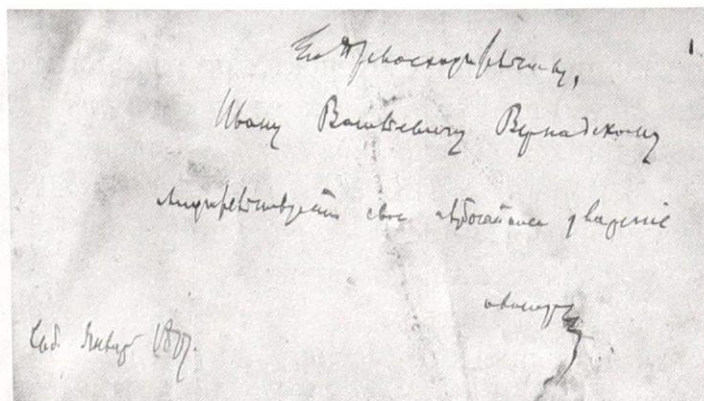 Его Превосходительству,
Ивану Васильевичу Вернадскому
свидетельствует свое глубочайшее уважение
авторъ
Спб. Январ 1877.